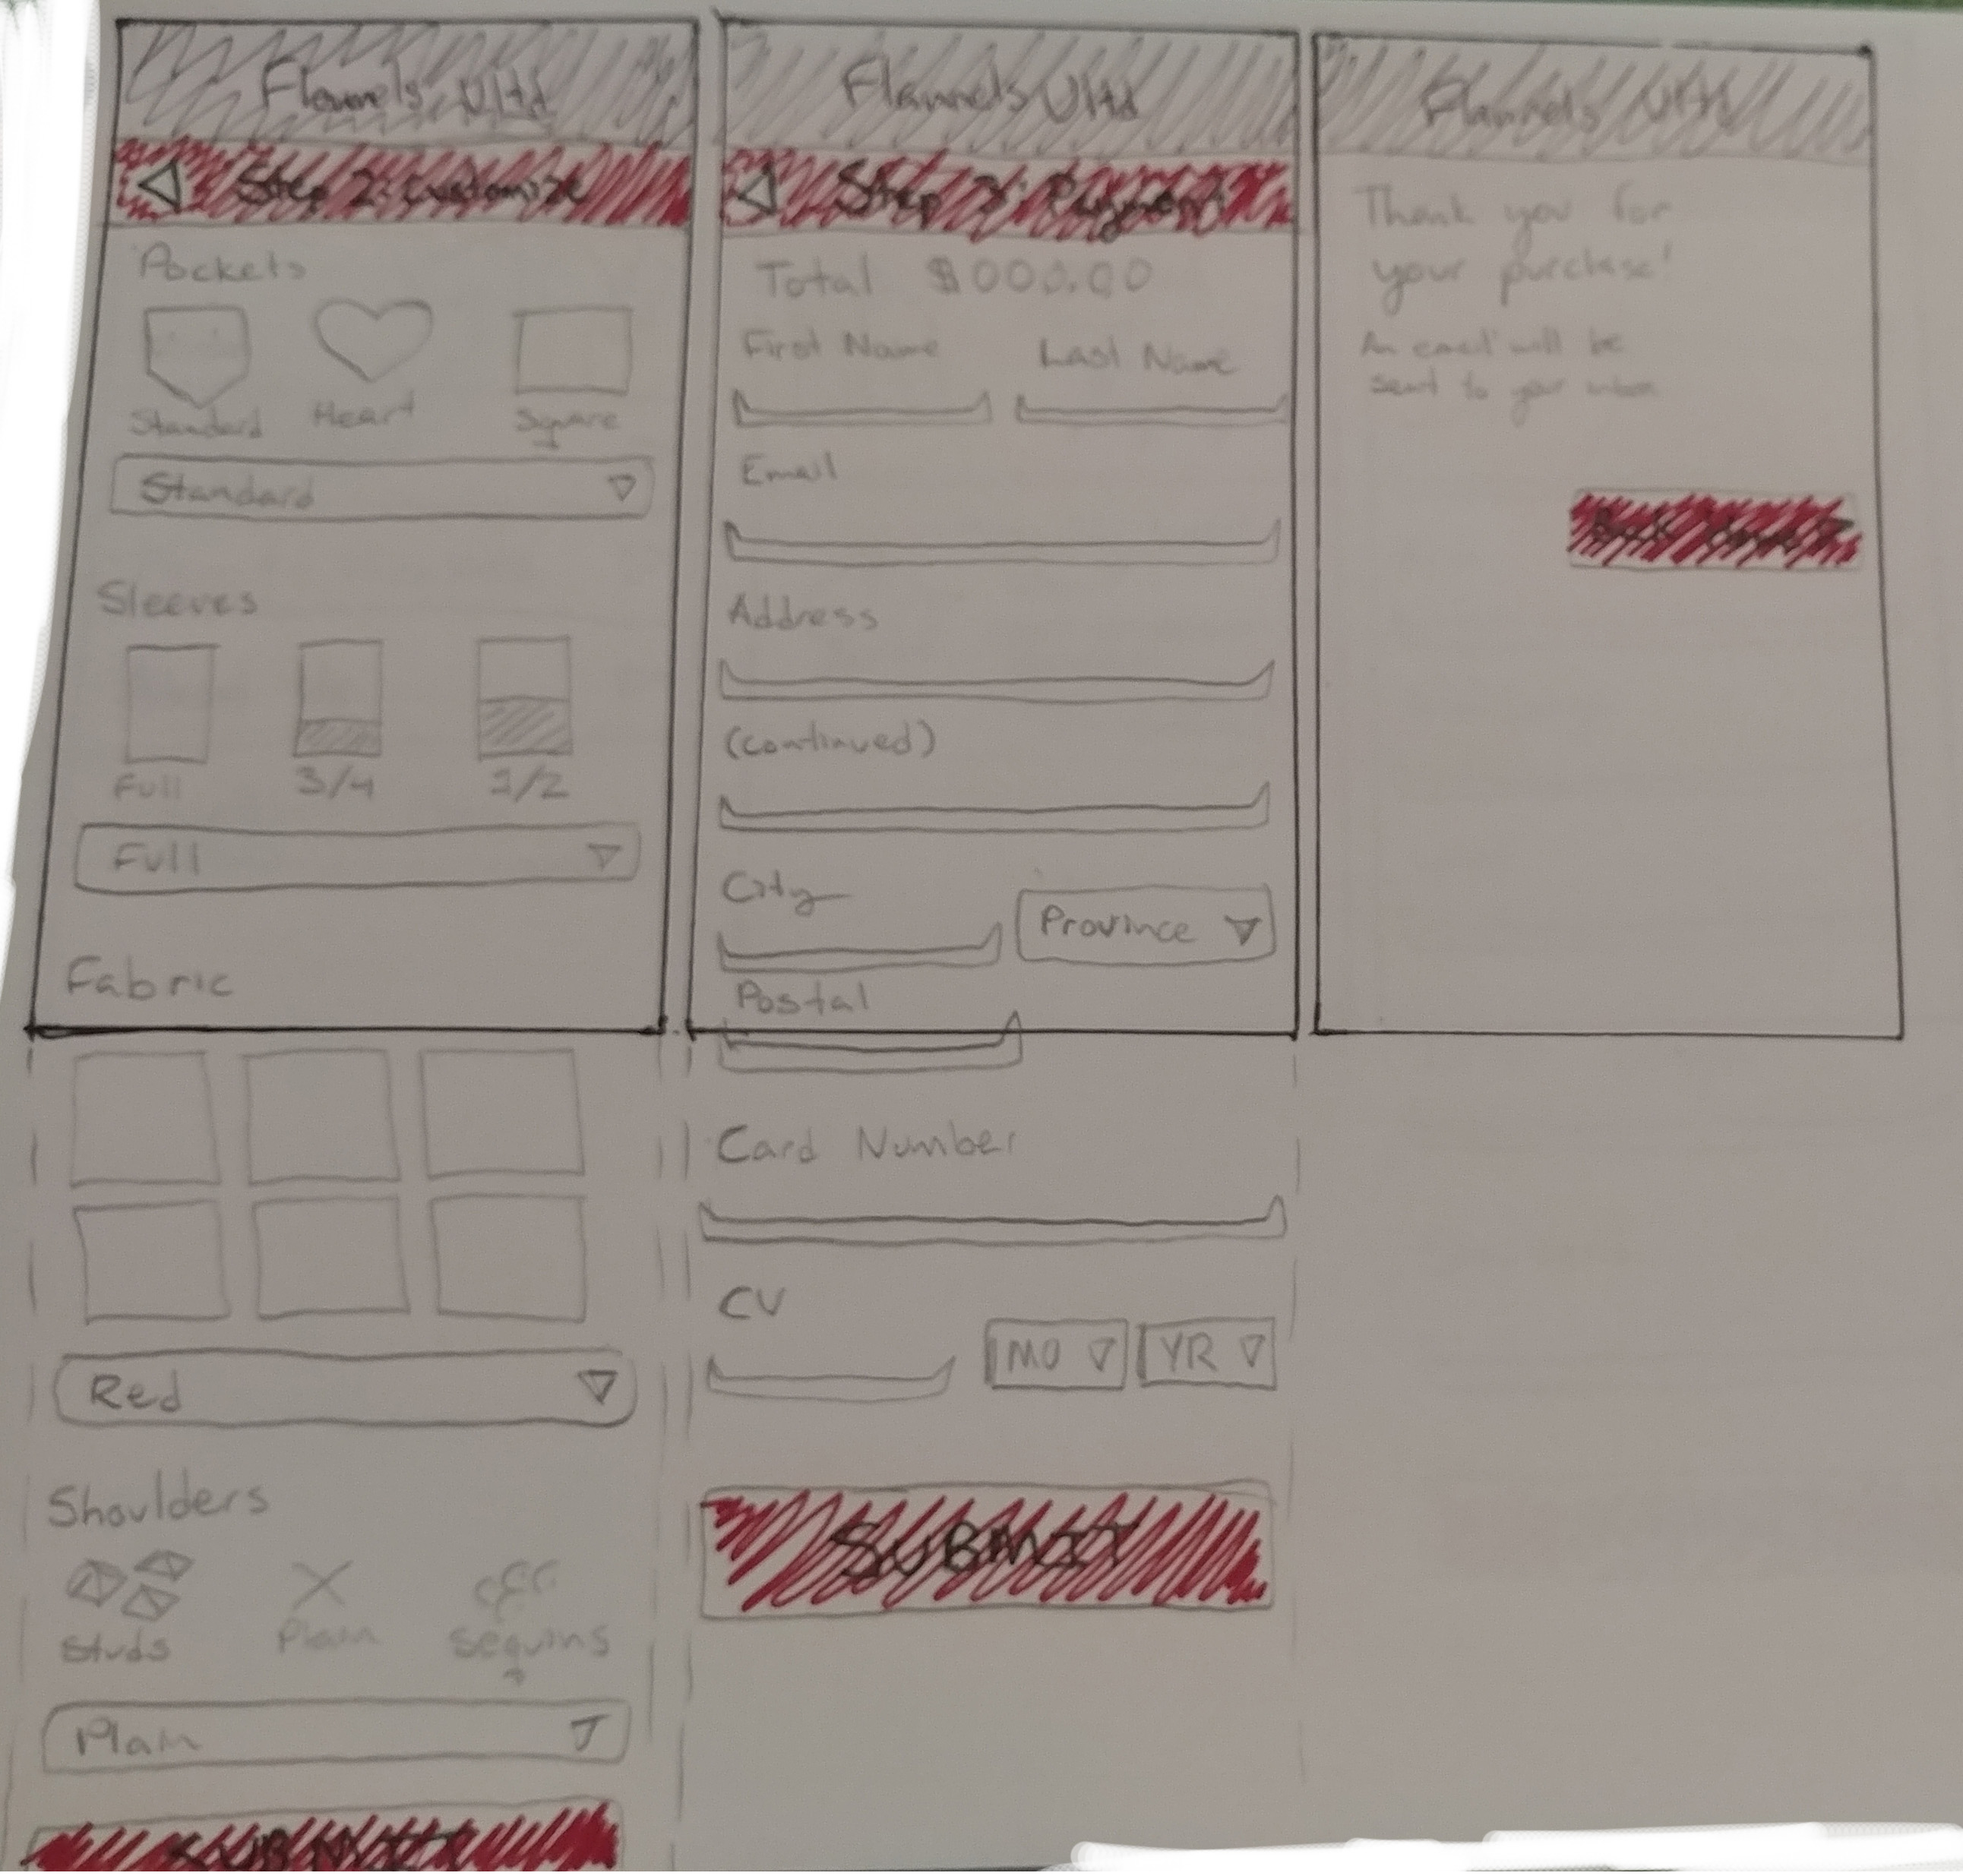 Flannels Ultd
Step 2: Customize
Pockets
Standard Heart Square
Standard
Sleeves
Full 3/4 1/2
Full
Fabric
Red
Shoulders
Studs Plain Sequins
Plain
SUBMIT
Flannels Ultd
Step 3: Payment
Total $000.00
First Name Last Name
Email
Address
(continued)
City Province
Postal
Card Number
CV MO YR
SUBMIT
Flannels Ultd
Thank you for
your purchase!
An email will be
sent to your inbox